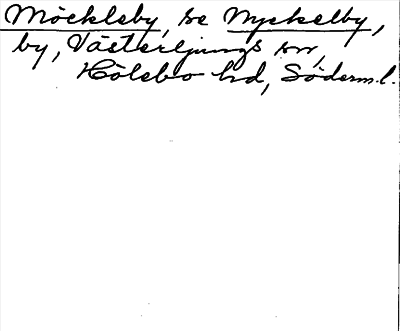 Möckleby, se Nyckelby,
by, Västerljungs sn,
Hölebo hd, Söderml.